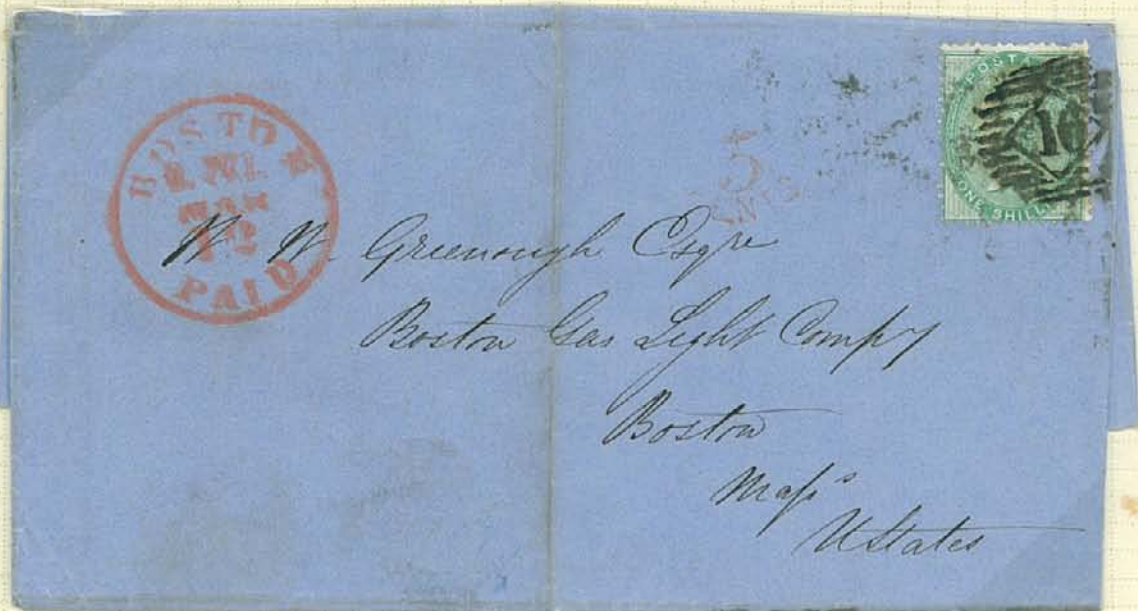 BOSTON
PAID
5
CENTS
POSTA
ONE SHILL
10
W. W. Greenough Esqre
Boston Gas Light Compy
Boston
Mass
UStates